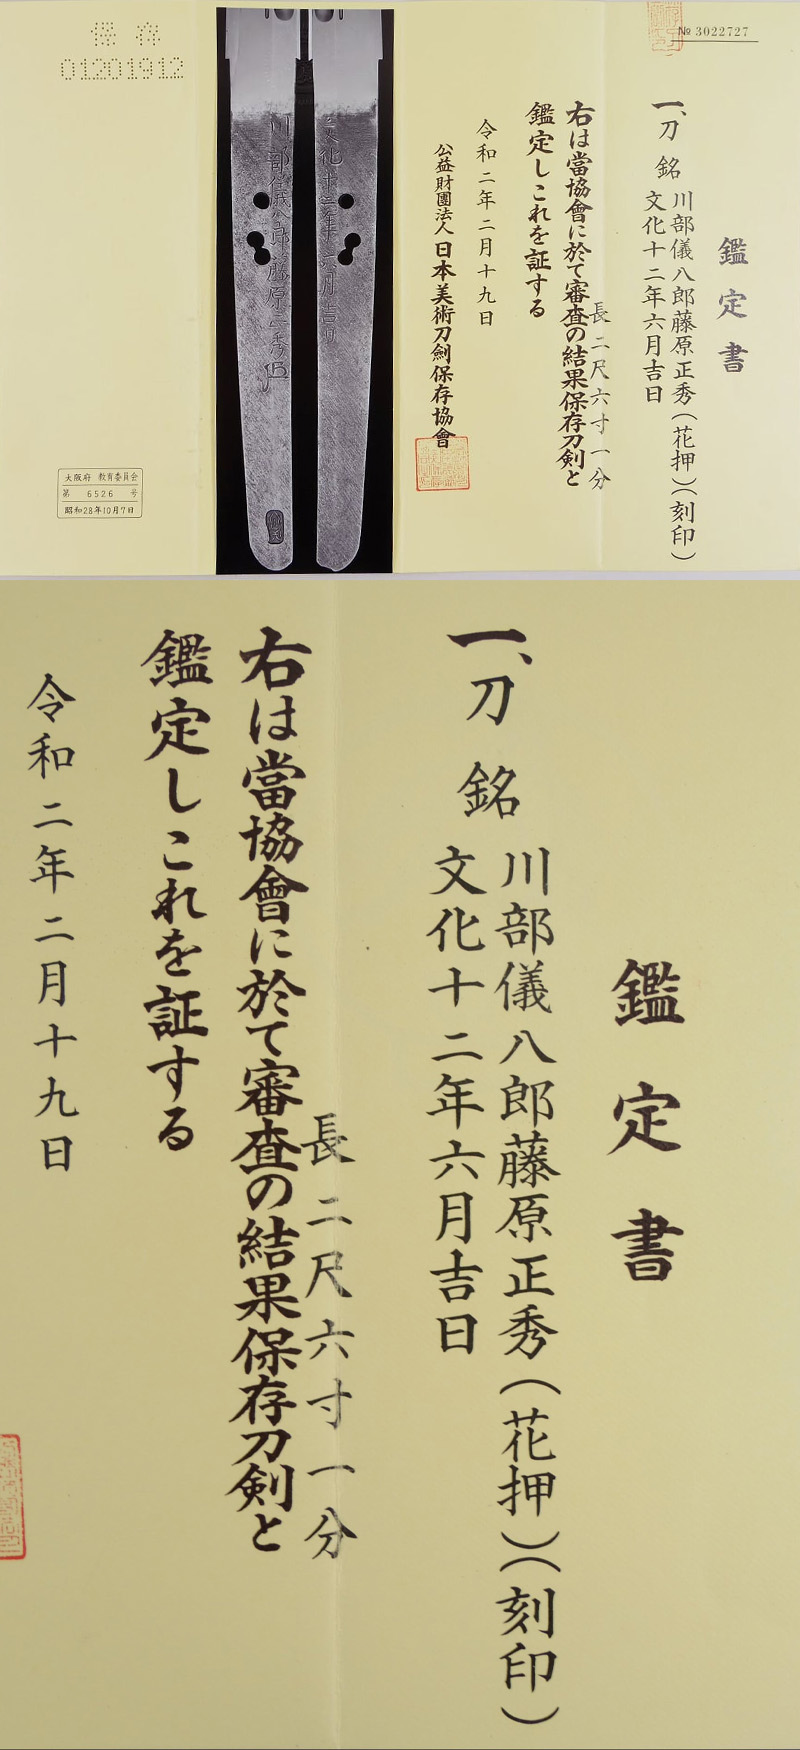 № 3022727
鑑定書
一、刀 銘 川部儀八郎藤原正秀(花押)(刻印)
文化十二年六月吉日
長二尺六寸一分
右は當協會に於て審査の結果保存刀剣と
鑑定しこれを証する
令和二年二月十九日
公益財團法人日本美術刀劍保存協會
文化十二年六月吉日
川部儀八郎藤原正秀
保存
01201912
大阪府 教育委員会
第 6526 号
昭和28年10月7日
鑑定書
一、刀 銘 川部儀八郎藤原正秀(花押)(刻印)
文化十二年六月吉日
長二尺六寸一分
右は當協會に於て審査の結果保存刀剣と
鑑定しこれを証する
令和二年二月十九日